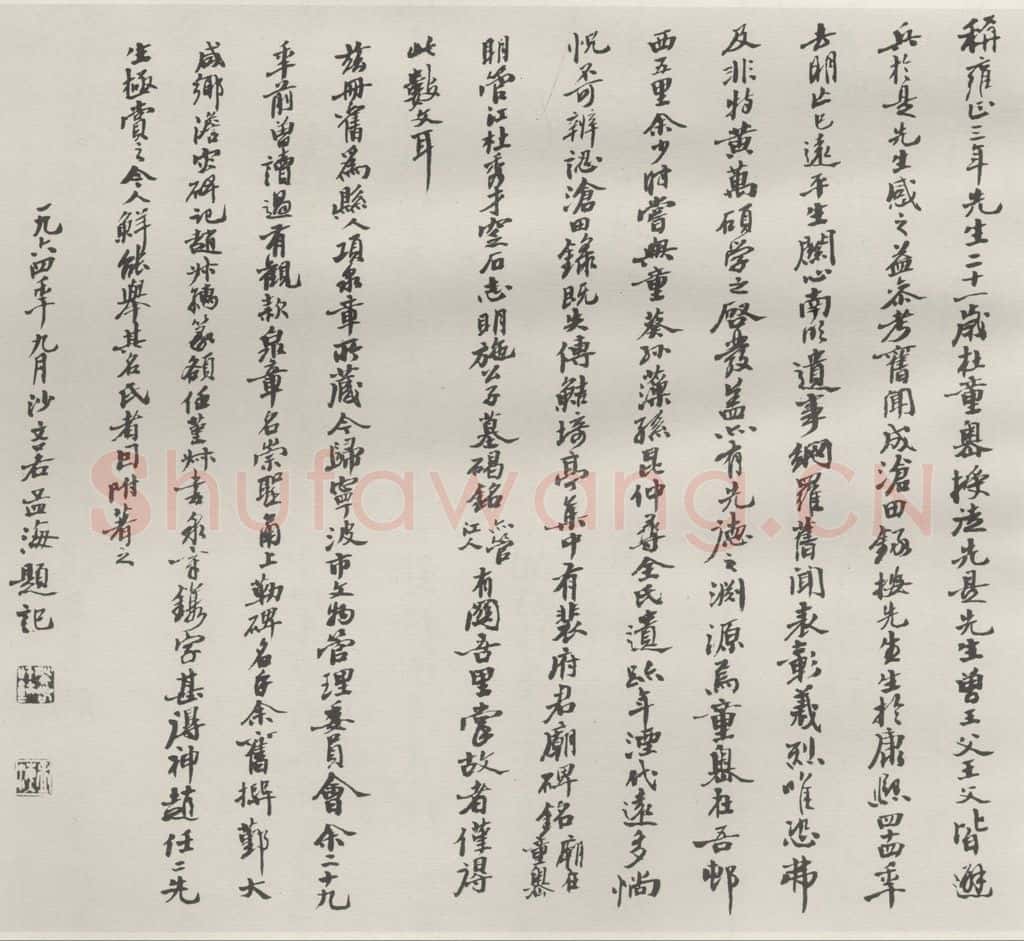 稱雍正三年先生二十一歲杜童嶴授徒先是先生曾王父王父皆避
兵於是先生感之益參考舊聞成滄田錄按先生生於康熙四十四年
去明亡已遠平生關心南明遺事網羅舊聞表彰義烈唯恐弗
及非特黃萬碩學之啓發蓋亦有先德之淵源焉童嶴在吾邨
西五里余少時嘗與童葵孫藻孫昆仲尋全氏遺跡年湮代遠多惝
怳不可辨認滄田錄既失傳鮚埼亭集中有裴府君廟碑銘廟在童嶴
明管江杜秀才窆石志明施公子墓碣銘亦管江人有關吾里掌故者僅得
此數文耳
茲冊舊為縣人項泉章所藏今歸寧波市文物管理委員會余二十九
年前曾讀過有觀款泉章名崇聖甬上勒碑名手余舊撰鄞大
咸鄉澹災碑記趙叔孺篆額任堇叔書泉章鐫字甚得神趙任二先
生極賞之今人鮮能舉其名氏者因附著之
一九六四年九月沙文若孟海題記
Shufawang.CN